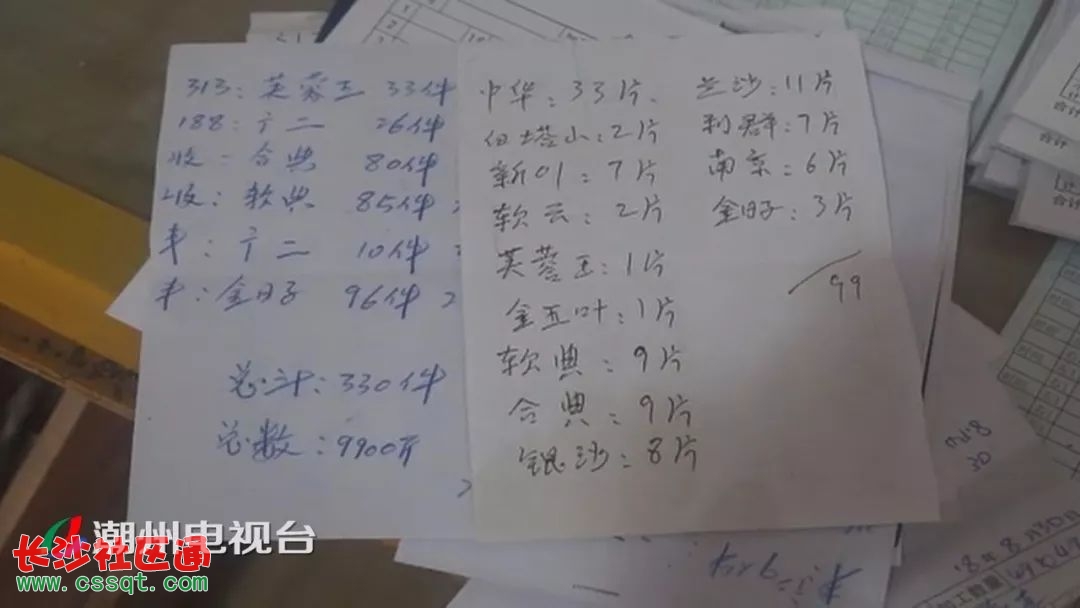 313：芙蓉王 33件
188：广二 26件
收：合典 80件
收：软典 85件
丰：广二 10件
丰：金日子 96件
总计：330件
总数：9900斤
中华：33片
白塔小：2片
新01：7片
软云：2片
芙蓉王：1片
金五叶：1片
软典：9片
合典：9片
银沙：8片
兰沙：11片
利群：7片
南京：6片
金日子：3片
99
合计
合计
合计
30
潮州电视台
长沙社区通
www.cssqt.com